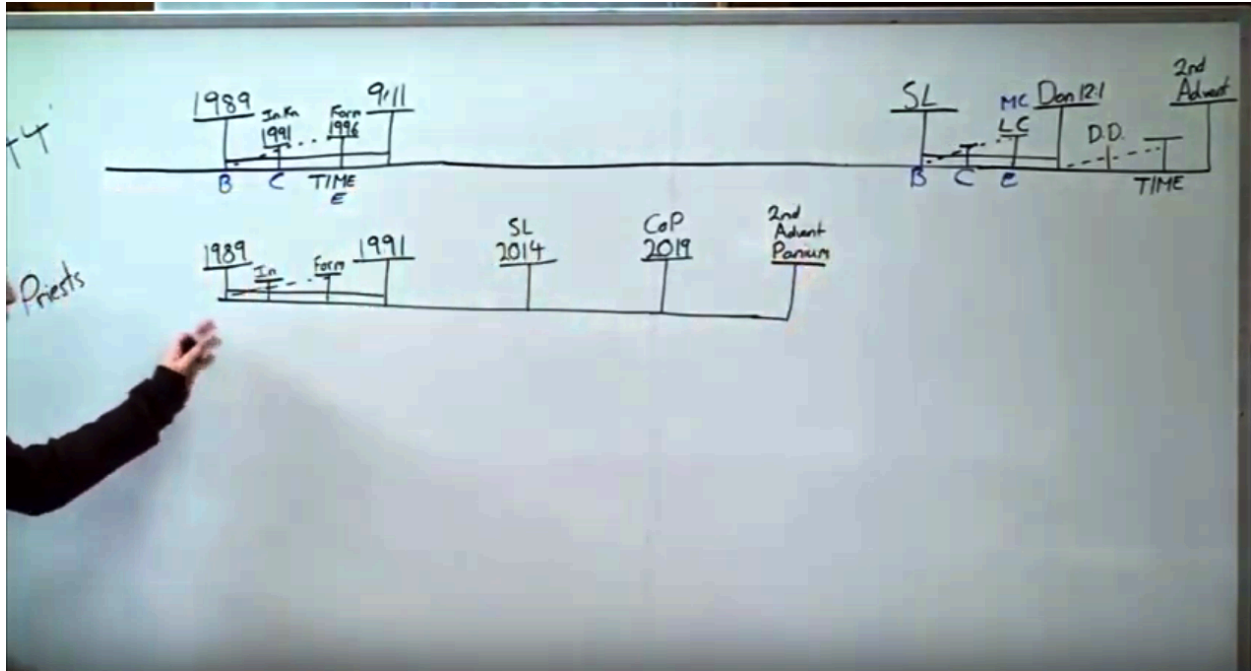 1989
In.Kn
1991
Form
1996
9/11
B
C
TIME
E
SL
MC
LC
Dan 12:1
D.D.
2nd
Advent
B
C
e
TIME
Priests
1989
In
Form
1991
SL
2014
CoP
2019
2nd
Advent
Panium